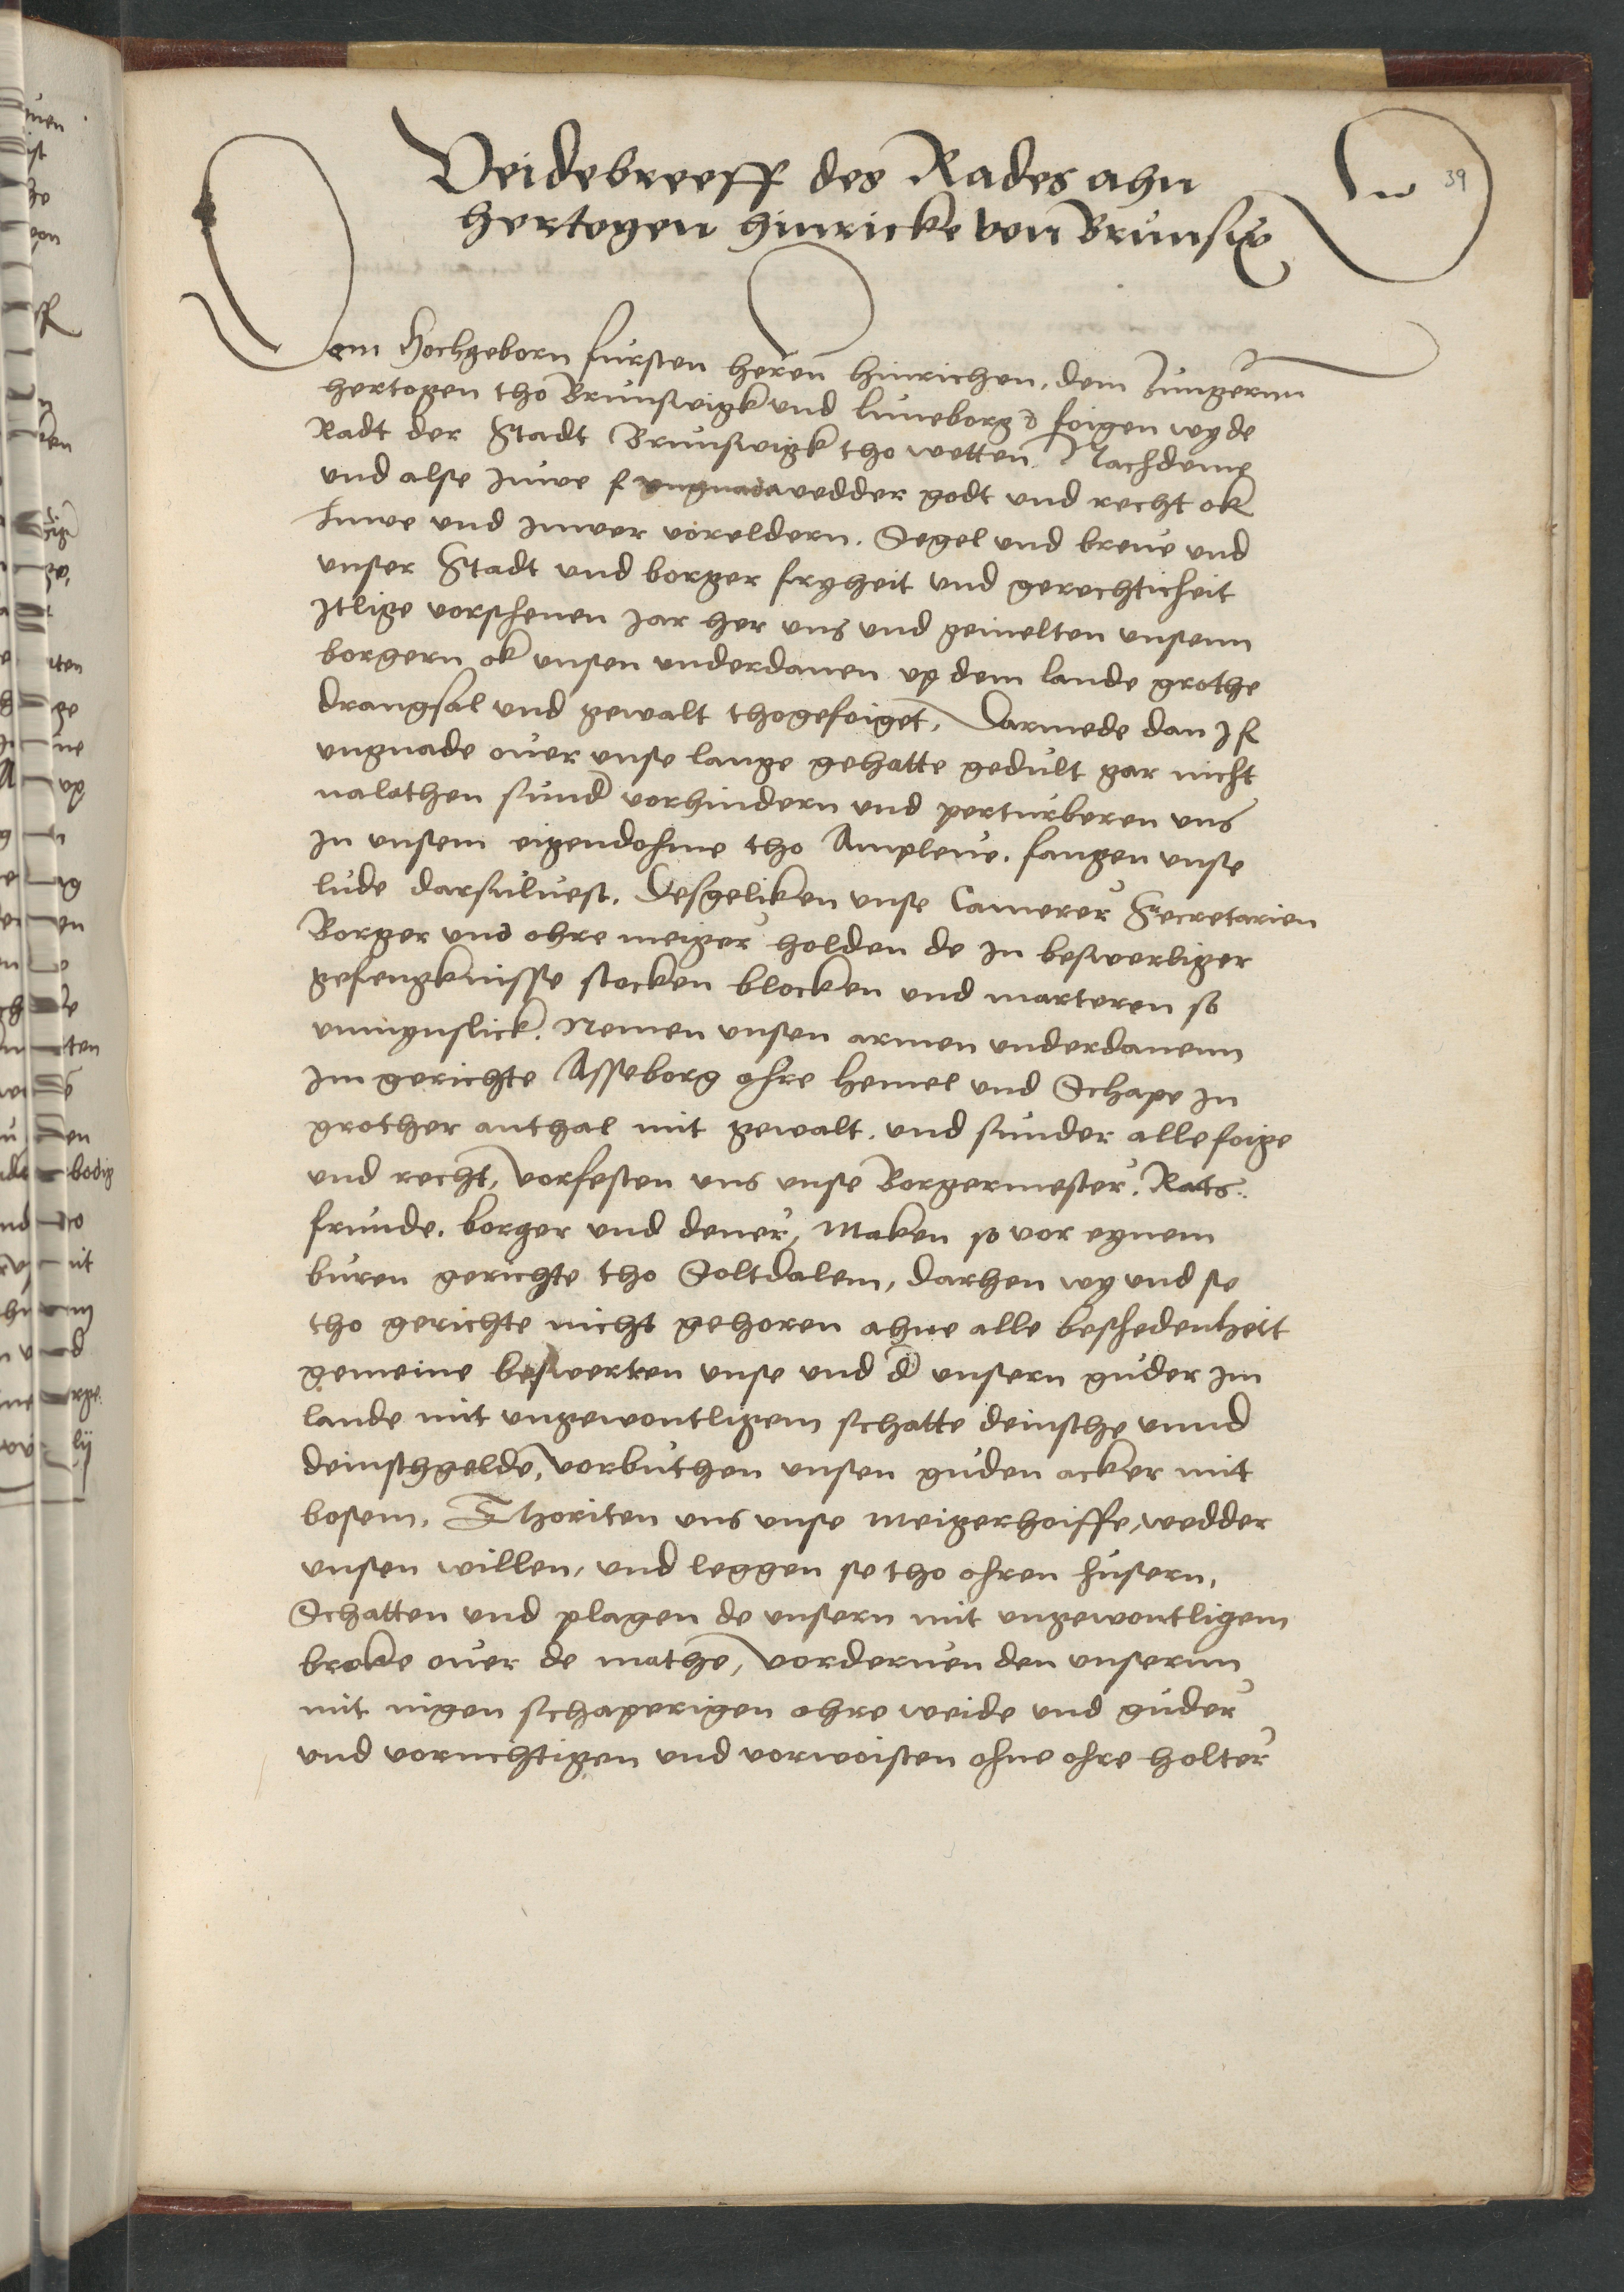 39
Veidebreeff des Rades ahn
hertogen hinricke von Brunswig
Dem Hochgeborn fursten heren hinrichen, dem Jungernn
hertogen tho Brunswigk und luneborg foigen wy de
Radt der Stadt Brunswigk tho wetten. Nachdeme
und alse Juwe f ungnada wedder godt und recht ok
Juwe und Juwer voreldern. Segel und breve und
unser Stadt und borger fryheit und gerechticheit
Itlige vorschenen Jar her uns und gemelten unsenn
borgern ok unsen underdanen up dem lande grothe
drangsal und gewalt thogefoiget, Darmede dan J f
ungnade over unse lange gehatte gedult gar nicht
nalathen sund vorhindern und perturberen uns
In unsem eigendohme tho Ampleve. fangen unse
lude darsulvest. Desgeliken unse Camerer Secretarien
Borger und ohre meiger holden de in beswerliger
gefengknisse stocken blocken und marteren so
unmynslick. Nemen unsen armen underdanenn
Im gerichte Asseborg ohre hemel und Schape In
grother anthal mit gewalt. und sunder alle foige
und recht, vorfesten uns unse Borgermester. Rats.
frunde. borger und dener, Maken so vor eynem
buren gerichte tho Soltdalem, darhen wy und se
tho gerichte nicht gehoren ahne alle beschedenheit
gemeine beswerten unse und d unsern guder im
lande mit ungewontligem schatte deinsthe unnd
deinsthgelde, vorbuthen unsen guden acker mit
bosem. Thoriten uns unse meigerhoiffe, wedder
unsen willen, und leggen se tho ohren husern,
Schatten und plagen de unsern mit ungewontligem
broke over de mathe, vorderven den unsernn
mit nigen schaperigen ohre weide und guder
und vornichtigen und vorwoisten ohne ohre holter